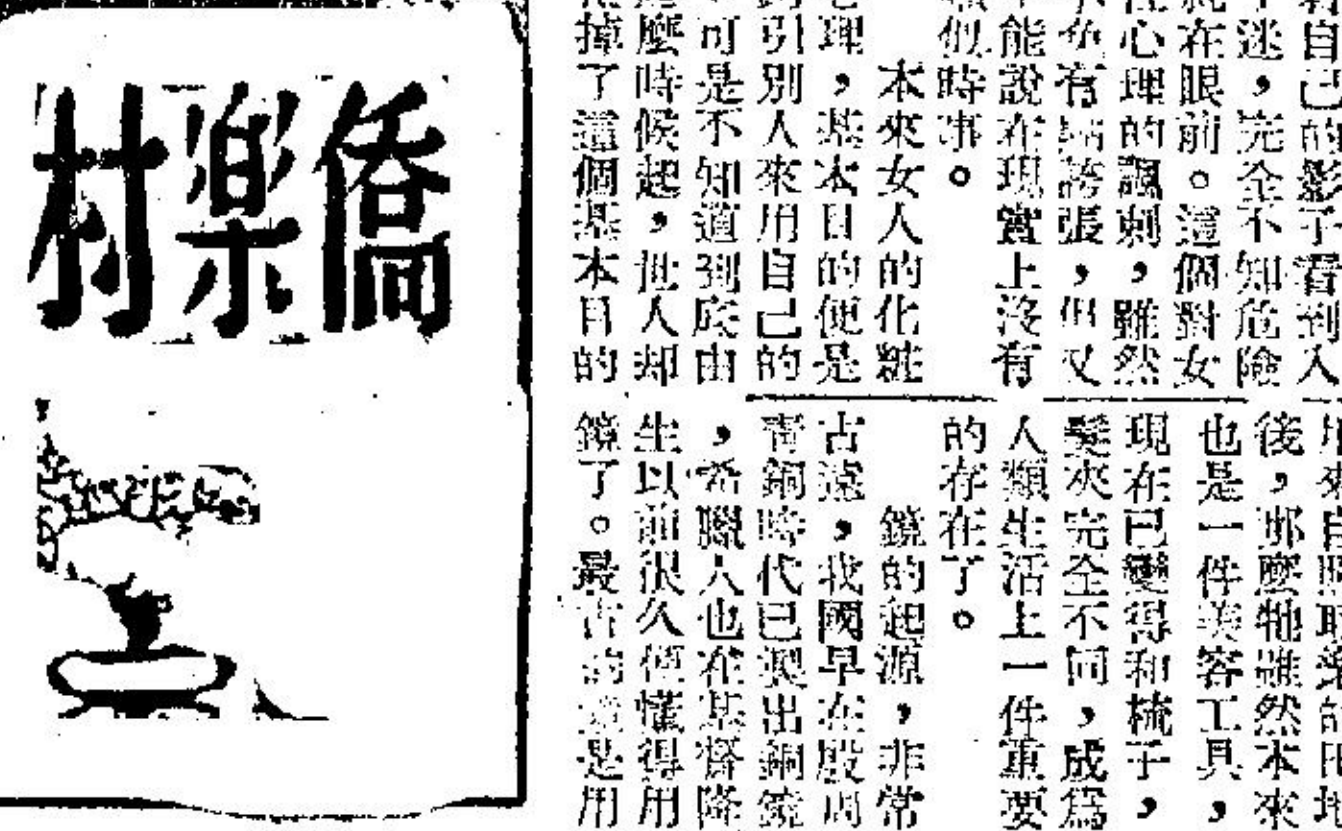 自己的影子看到入
迷，完全不知危險
就在眼前。這個對女
性心理的諷刺，雖然
不免有點誇張，但又
能說在現實上沒有
似時事。
本來女人的化粧
理，基本目的便是
引別人來用自己的
可是不知道到底由
麼時候起，世人却
掉了這個基本目的
來自照
後，那麼牠雖然本來
也是一件美容工具，
現在已變得和梳子，
髮夾完全不同，成爲
人類生活上一件重要
的存在了。
鏡的起源，非常
古遠，我國早在殷周
青銅時代已製出銅鏡
，希臘人也在基督降
生以前很久便懂得用
鏡了。最古的鏡是用
僑楽村